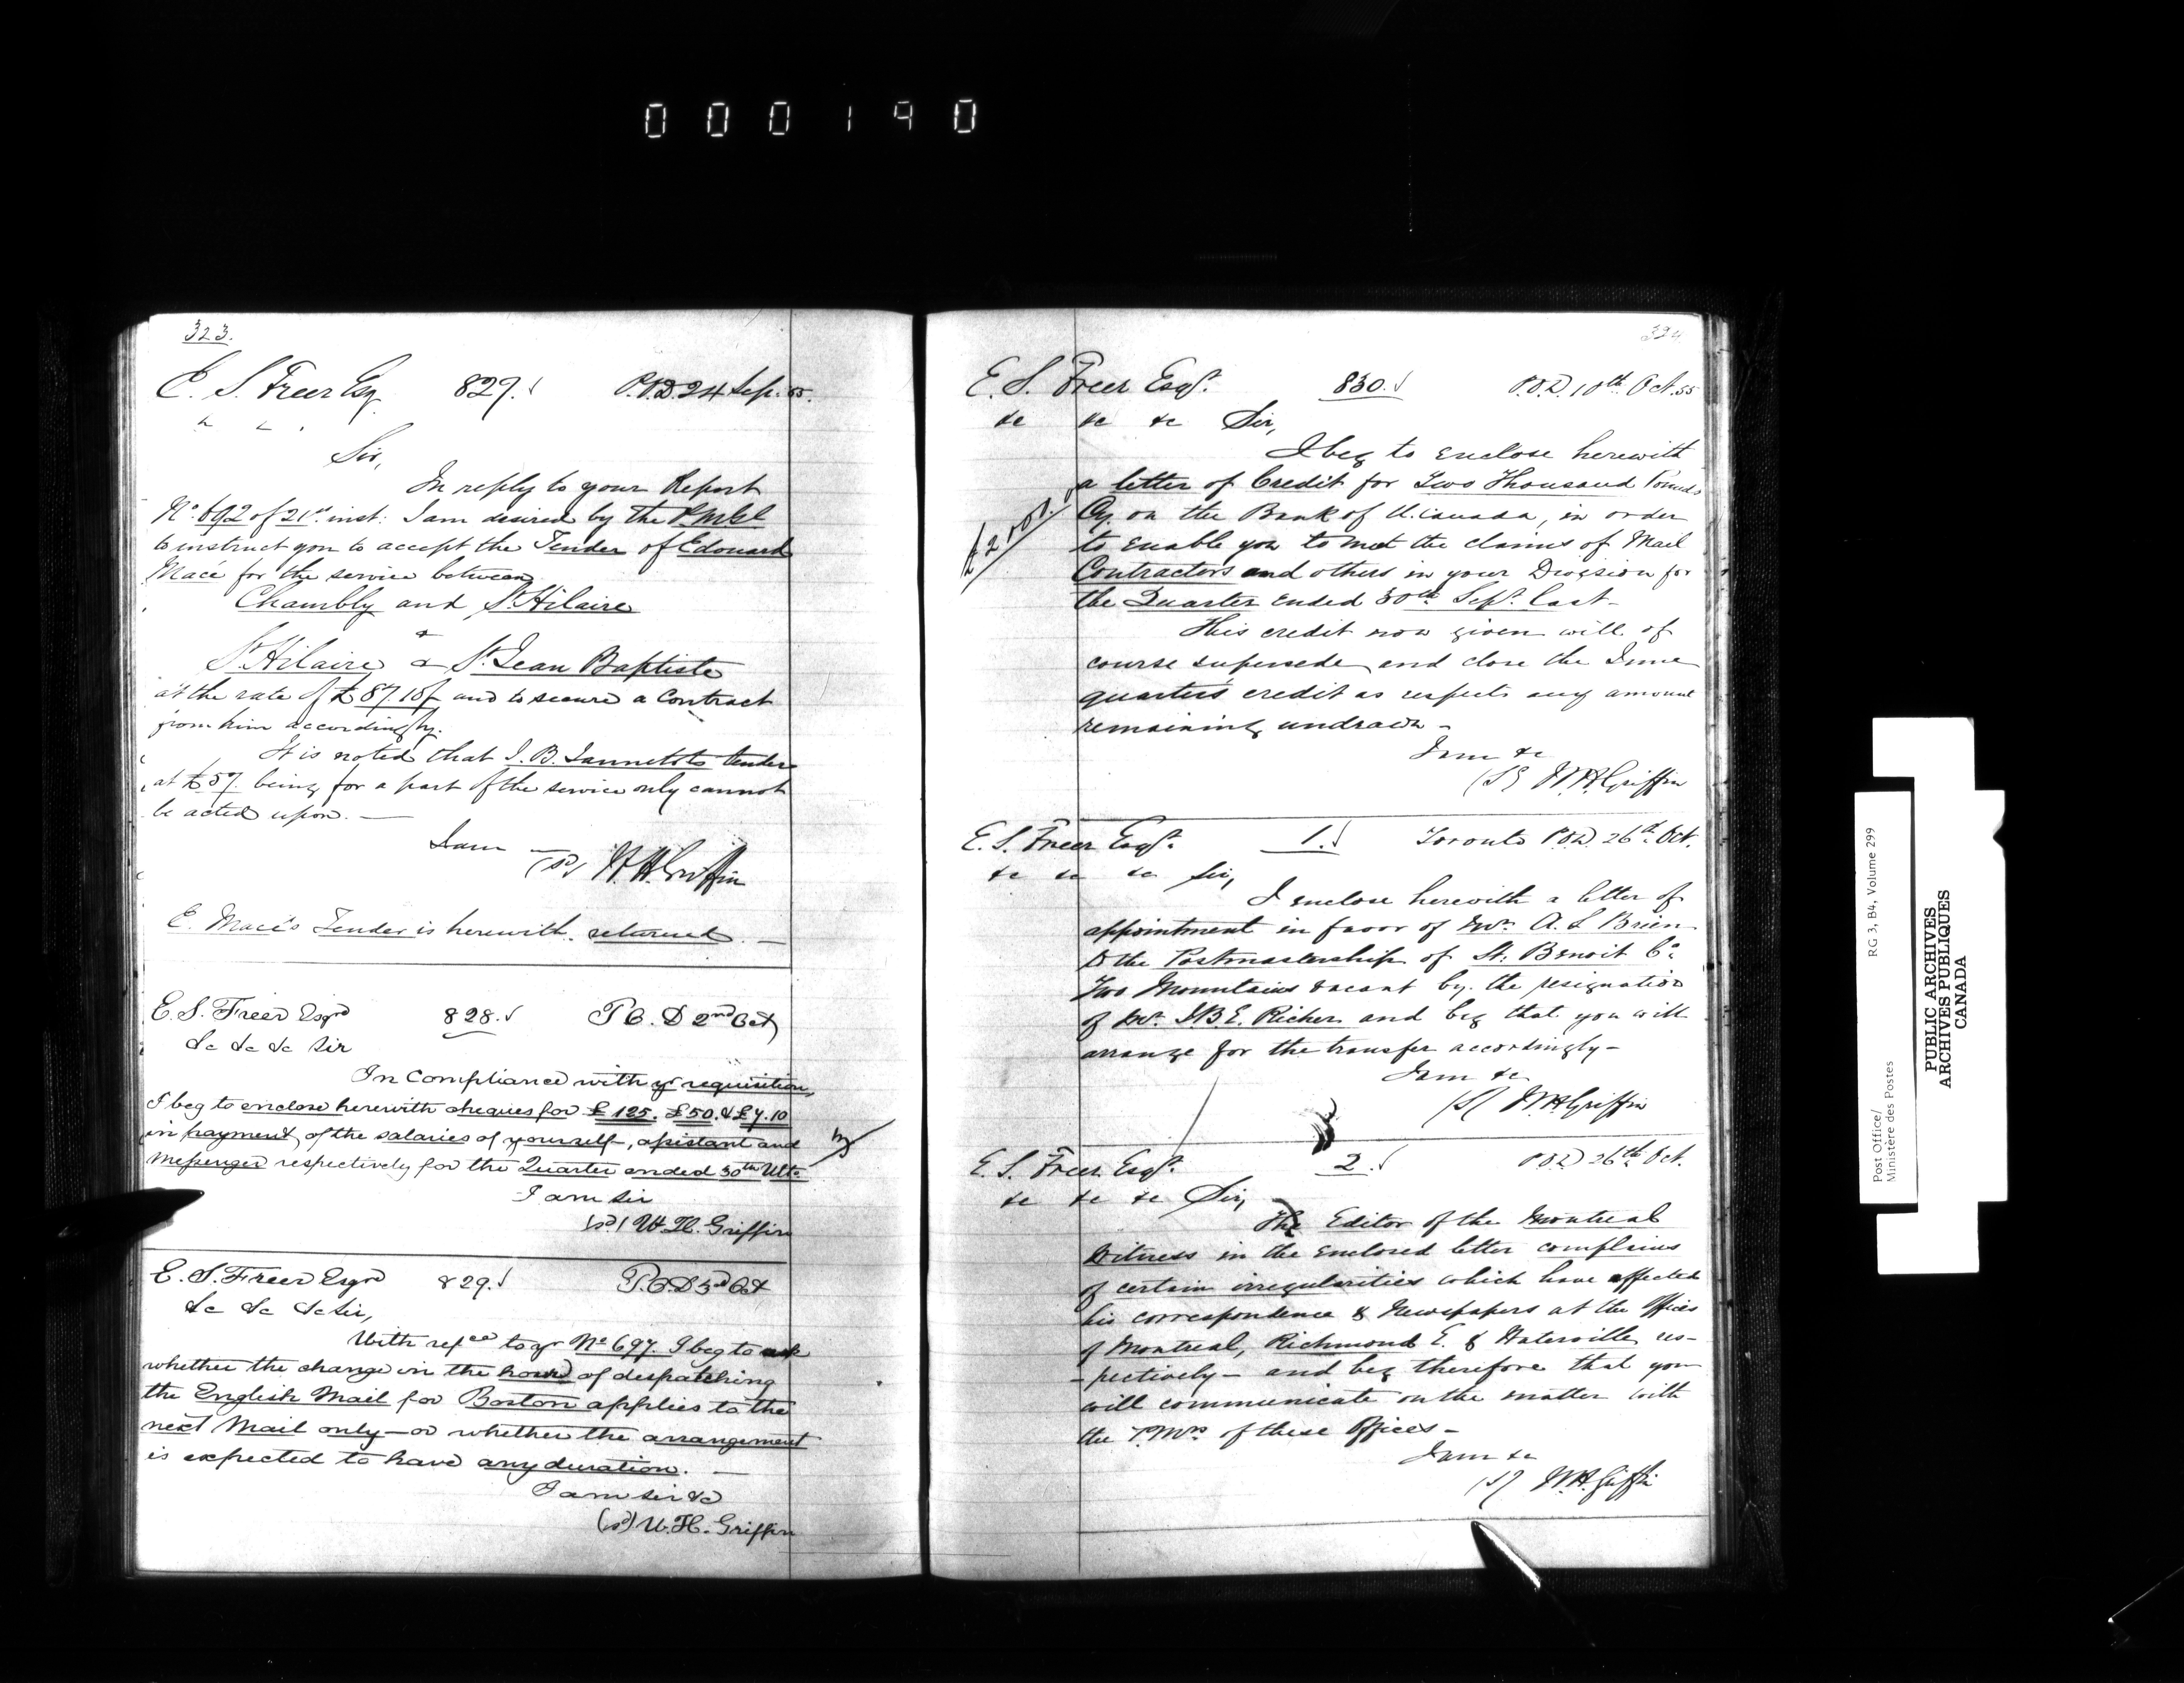 000190
323.
E. S. Freer Esq 829. P.O.D. 24 Sep. 55.
Sir,
In reply to your Report
No. 692 of 21st inst: I am desired by the P.M. Gl
to instruct you to accept the Tender of Edouard
Macé for the service between
Chambly and St Hilaire
&
St Hilaire & St. Jean Baptiste
at the rate of £87.10/ and to secure a Contract
from him accordingly.
It is noted that J. B. tender
at £57. being for a part of the service only cannot
be acted upon. —
I am —
(sd) W.H. Griffin
E. Macé's Tender is herewith returned. —
E. S. Freer Esqre 828. P.O.D 2nd Oct
&c &c &c Sir
In compliance with yr requisition,
I beg to enclose herewith cheques for £125. £50. & £7.10
in payment of the salaries of yourself, assistant and
Messenger respectively for the Quarter ended 30th Ulto
I am Sir
(sd) W. H. Griffin
E. S. Freer Esqre 829. P.O.D 3rd Oct
&c &c &c Sir,
With refce to yr No 697. I beg to ask
whether the change in the hour of despatching
the English Mail for Boston applies to the
next Mail only — or whether the arrangement
is expected to have any duration. —
I am Sir &c
(sd) W. H. Griffin
324
E. S. Freer Esqr. 830. P.O.D. 10th Oct. 55
&c &c &c Sir,
I beg to enclose herewith
a letter of Credit for Two Thousand Pounds
Cy. on the Bank of U. Canada, in order
to enable you to meet the claims of Mail
Contractors and others in your Division for
the Quarter ended 30th Sept. last —
This credit now given will of
course supersede and close the June
quarters credit as respects any amount
remaining undrawn —
I am &c
(S) W.H. Griffin
E. S. Freer Esqr. 1. Toronto P.O.D. 26th Oct.
&c &c &c Sir,
I enclose herewith a letter of
appointment in favor of Mr. A. L Brien
to the Postmastership of St. Benoit Co.
Two Mountains vacant by the resignation
of Mr. J.B.E. Richer and beg that you will
arrange for the transfer accordingly —
I am &c
(S) W.H Griffin
E. S. Freer Esqr. 2. P.O.D 26th Oct.
&c &c &c Sir,
The Editor of the Montreal
Witness in the enclosed letter complains
of certain irregularities which have affected
his correspondence & Newspapers at the Offices
of Montreal, Richmond E. & Waterville res-
-pectively — and beg therefore that you
will communicate on the matter with
the P.Mrs of these Offices —
I am &c
(S) W.H. Griffin
Post Office/
Ministère des Postes
RG 3, B4, Volume 299
PUBLIC ARCHIVES
ARCHIVES PUBLIQUES
CANADA